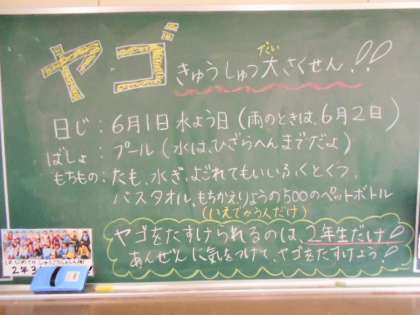 ヤゴ きゅうしゅつ大さくせん!!
だい
日じ：6月1日水よう日(雨のときは、6月2日)
ばしょ：プール(水は、ひざらへんまでだよ)
もちもの：たも、水ぎ、よごれてもいいふくとくつ、
バスタオル、もちかえりようの500のペットボトル
(いえでかう人だけ)
ヤゴをたすけられるのは、2年生だけ!
あんぜんに気をつけて、ヤゴをたすけよう!
2年3